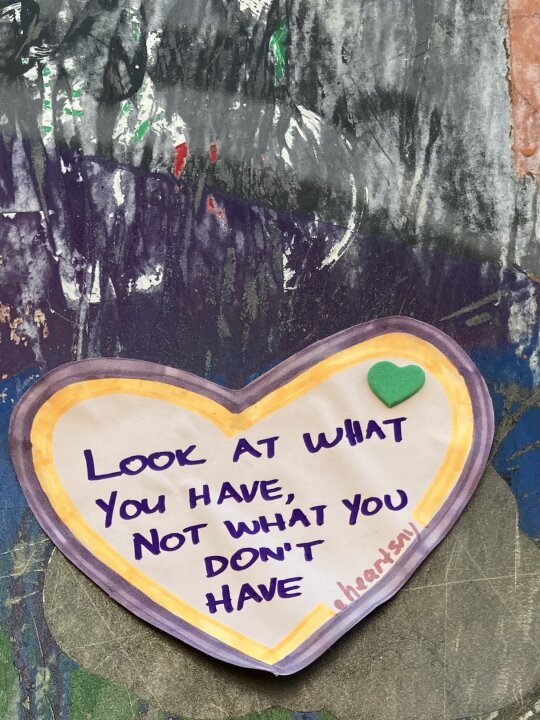 LOOK AT WHAT
YOU HAVE,
NOT WHAT YOU
DON'T
HAVE
@heartsny